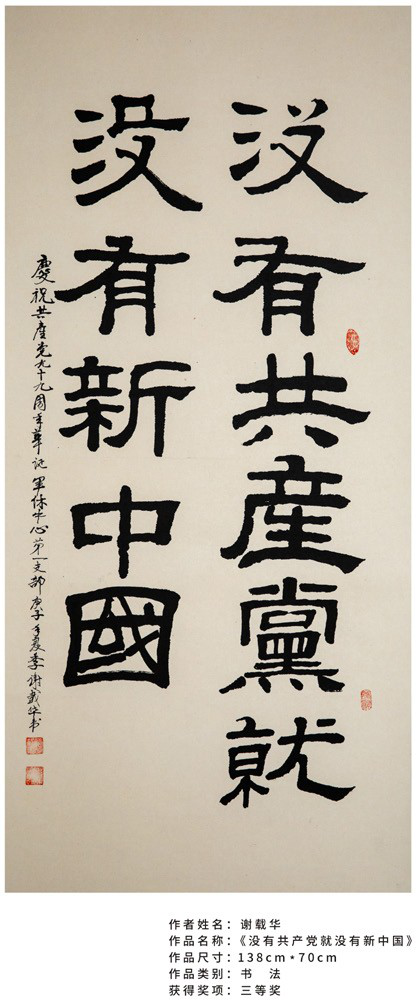 没有共産黨就
没有新中國
慶祝共產党九十九周年華诞 軍休中心第一支部 庚子年夏季 谢载华书
作者姓名：谢载华
作品名称：《没有共产党就没有新中国》
作品尺寸：138cm*70cm
作品类别：书 法
获得奖项：三等奖